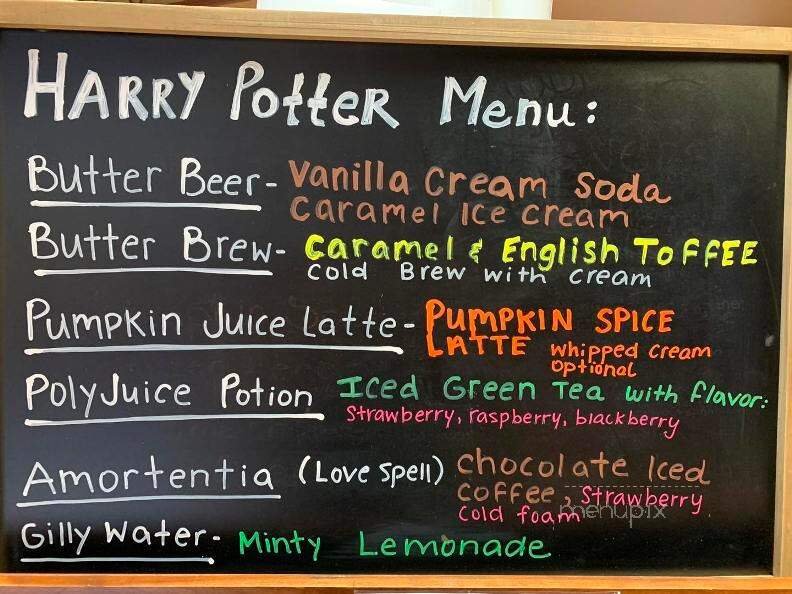 HARRY Potter Menu:
Butter Beer- Vanilla Cream Soda
Caramel Ice cream
Butter Brew- Caramel & English ToFFEE
Cold Brew with cream
Pumpkin Juice Latte- PUMPKIN SPICE
LATTE whipped cream
optional
PolyJuice Potion Iced Green Tea with flavor:
Strawberry, raspberry, blackberry
Amortentia (Love Spell) Chocolate Iced
Coffee, Strawberry
Cold foam
menupix
Gilly Water- Minty Lemonade